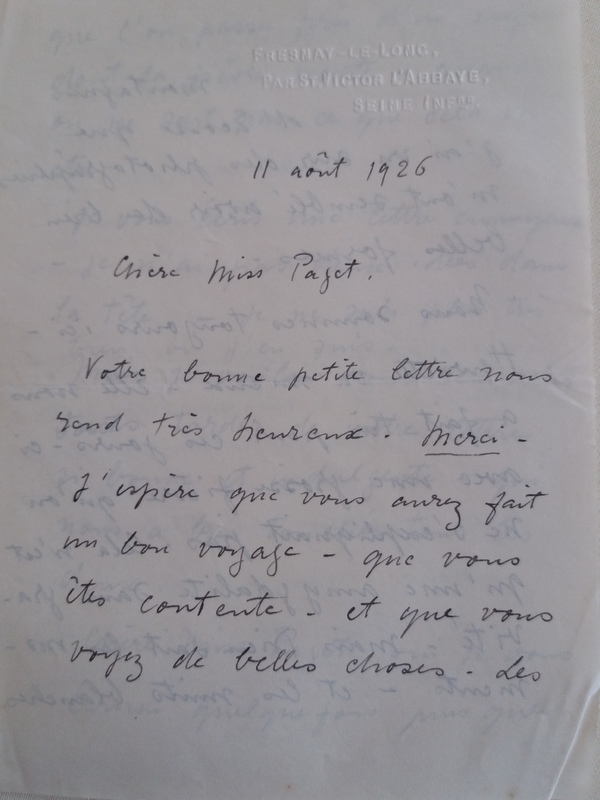 FRESNAY-LE-LONG,
PAR ST. VICTOR L'ABBAYE,
SEINE INFRE.
11 août 1926
Chère Miss Paget.
Votre bonne petite lettre nous
rend très heureux. Merci -
J'espère que vous aurez fait
un bon voyage - que vous
êtes contente - et que vous
voyez de belles choses. Les